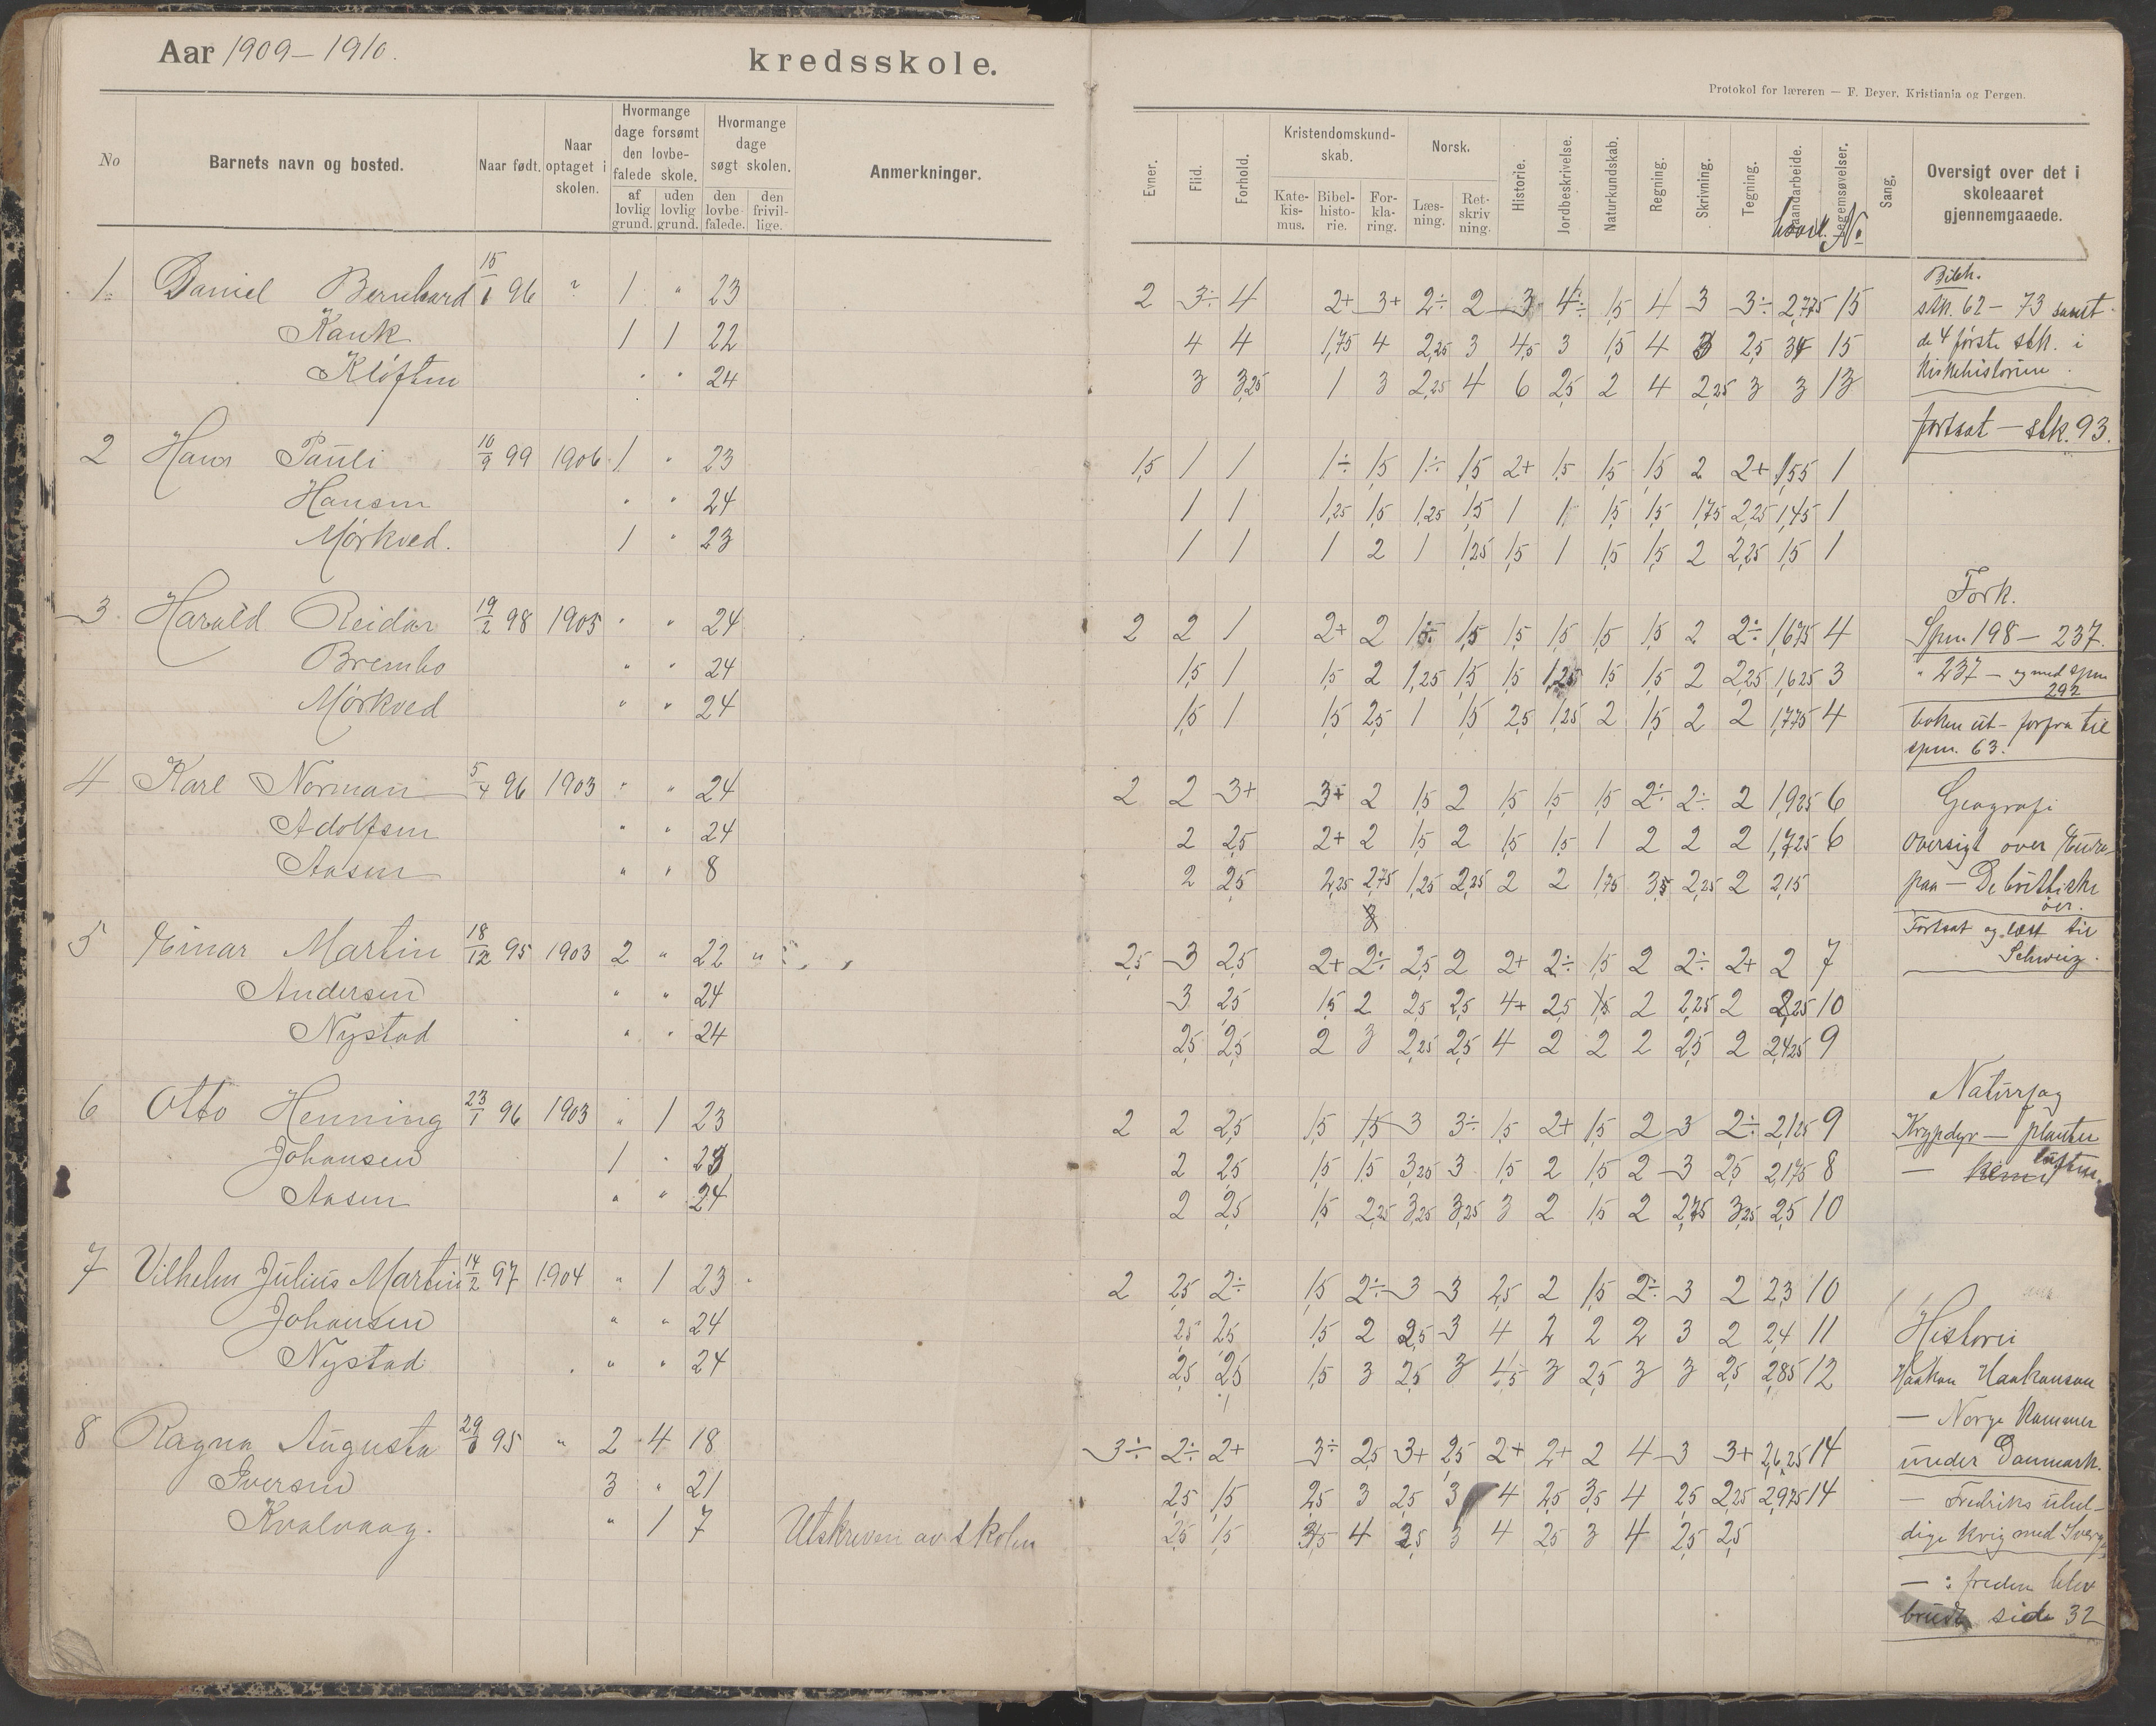 Aar 1909–1910.
kredsskole.
Protokol for læreren — F. Beyer, Kristiania og Bergen.
No
Barnets navn og bosted.
Naar født.
Naar optaget i skolen.
Hvormange dage forsømt den lovbefalede skole.
af lovlig grund.
uden lovlig grund.
Hvormange dage søgt skolen.
den lovbefalede.
den frivillige.
Anmerkninger.
Evner.
Flid.
Forhold.
Kristendomskundskab.
Katekismus.
Bibelhistorie.
Forklaring.
Norsk.
Læsning.
Retskrivning.
Historie.
Jordbeskrivelse.
Naturkundskab.
Regning.
Skrivning.
Tegning.
Haandarbeide.
Legemsøvelser.
Sang.
Oversigt over det i skoleaaret gjennemgaaede.
hovk. No
1. Daniel Bernhard 15/1 96 " 1 " 23 2 3÷ 4 2+ 3+ 2÷ 2 3 4÷ 1,5 4 3 3÷ 2,775 15
Kauk 1 1 22 4 4 1,75 4 2,25 3 4,5 3 1,5 4 3 2,5 15
Kløften " " 24 3 3,25 1 3 2,25 4 6 2,5 2 4 2,25 3 3 13
2 Hans Pauli 10/9 99 1906 1 " 23 1,5 1 1 1÷ 1,5 1÷ 1,5 2+ 1,5 1,5 1,5 2 2+ 1,55 1
Hansen " " 24 1 1 1,25 1,5 1,25 1,5 1 1 1,5 1,5 1,75 2,25 1,45 1
Mørkved. 1 " 23 1 1 1 2 1 1,25 1,5 1 1,5 1,5 2 2,25 1,5 1
3 Harald Reidar 19/2 98 1905 " " 24 2 2 1 2+ 2 1,5÷ 1,5 1,5 1,5 1,5 1,5 2 2÷ 1,675 4
Brembo " " 24 1,5 1 1,5 2 1,25 1,5 1,5 1,25 1,5 1,5 2 2,25 1,625 3
Mørkved " " 24 1,5 1 1,5 2,5 1 1,5 2,5 1,25 2 1,5 2 2 1,775 4
4 Karl Norman 5/4 96 1903 " " 24 2 2 3+ 3+ 2 1,5 2 1,5 1,5 1,5 2÷ 2÷ 2 1,925 6
Adolfsen " " 24 2 2,5 2+ 2 1,5 2 1,5 1,5 1 2 2 2 1,725 6
Aasen " " 8 2 2,5 2,25 2,75 1,25 2,25 2 2 1,75 3,5 2,25 2 2,15
5 Einar Martin 18/12 95 1903 2 " 22 " 2,5 3 2,5 2+ 2÷ 2,5 2 2+ 2÷ 1,5 2 2÷ 2+ 2 7
Andersen " " 24 3 2,5 1,5 2 2,5 2,5 4+ 2,5 1,5 2 2,25 2 2,25 10
Nystad " " 24 2,5 2,5 2 3 2,25 2,5 4 2 2 2 2,5 2 2,425 9
6 Otto Henning 23/1 96 1903 " 1 23 2 2 2,5 1,5 1,5 3 3÷ 1,5 2+ 1,5 2 3 2÷ 2,125 9
Johansen 1 " 23 2 2,5 1,5 1,5 3,25 3 1,5 2 1,5 2 3 2,5 2,175 8
Aasen " " 24 2 2,5 1,5 2,25 3,25 3,25 3 2 1,5 2 2,75 3,25 2,5 10
7 Vilhelm Julius Martin 14/2 97 1904 " 1 23 " 2 2,5 2÷ 1,5 2÷ 3 3 2,5 2 1,5 2÷ 3 2 2,3 10
Johansen " " 24 2,5 2,5 1,5 2 2,5 3 4 2 2 2 3 2 2,4 11
Nystad " " 24 2,5 2,5 1,5 3 2,5 3 4,5 3 2,5 3 3 2,5 2,85 12
8 Ragna Augusta 29/6 95 " 2 4 18 3÷ 2÷ 2+ 3÷ 2,5 3+ 2,5 2+ 2+ 2 4 3 3+ 2,625 14
Iversen 3 " 21 2,5 1,5 2,5 3 2,5 3 4 2,5 3,5 4 2,5 2,25 2,975 14
Kvalvaag. " 1 7 Utskreven av skolen 2,5 1,5 3,5 4 2,5 3 4 2,5 3 4 2,5 2,5
Bibh.
stk. 62 – 73 samt
de 4 første stk. i
kirkehistorien.
fortsat – stk. 93.
Fork.
Spm 198 – 237.
" 237 – og med spm
292
boken ut – forfra til
spm. 63.
Geografi
Oversigt over Euro-
paa – De brittiske
øer.
Fortsat og læst til
Schweiz.
Naturfag
Krypdyr – planter
– kemi luften.
Historie
Haakon Haakonson
– Norge kommer
under Danmark.
– Fredriks uhel-
dige krig med Sverge
– : freden blev
brudt side 32